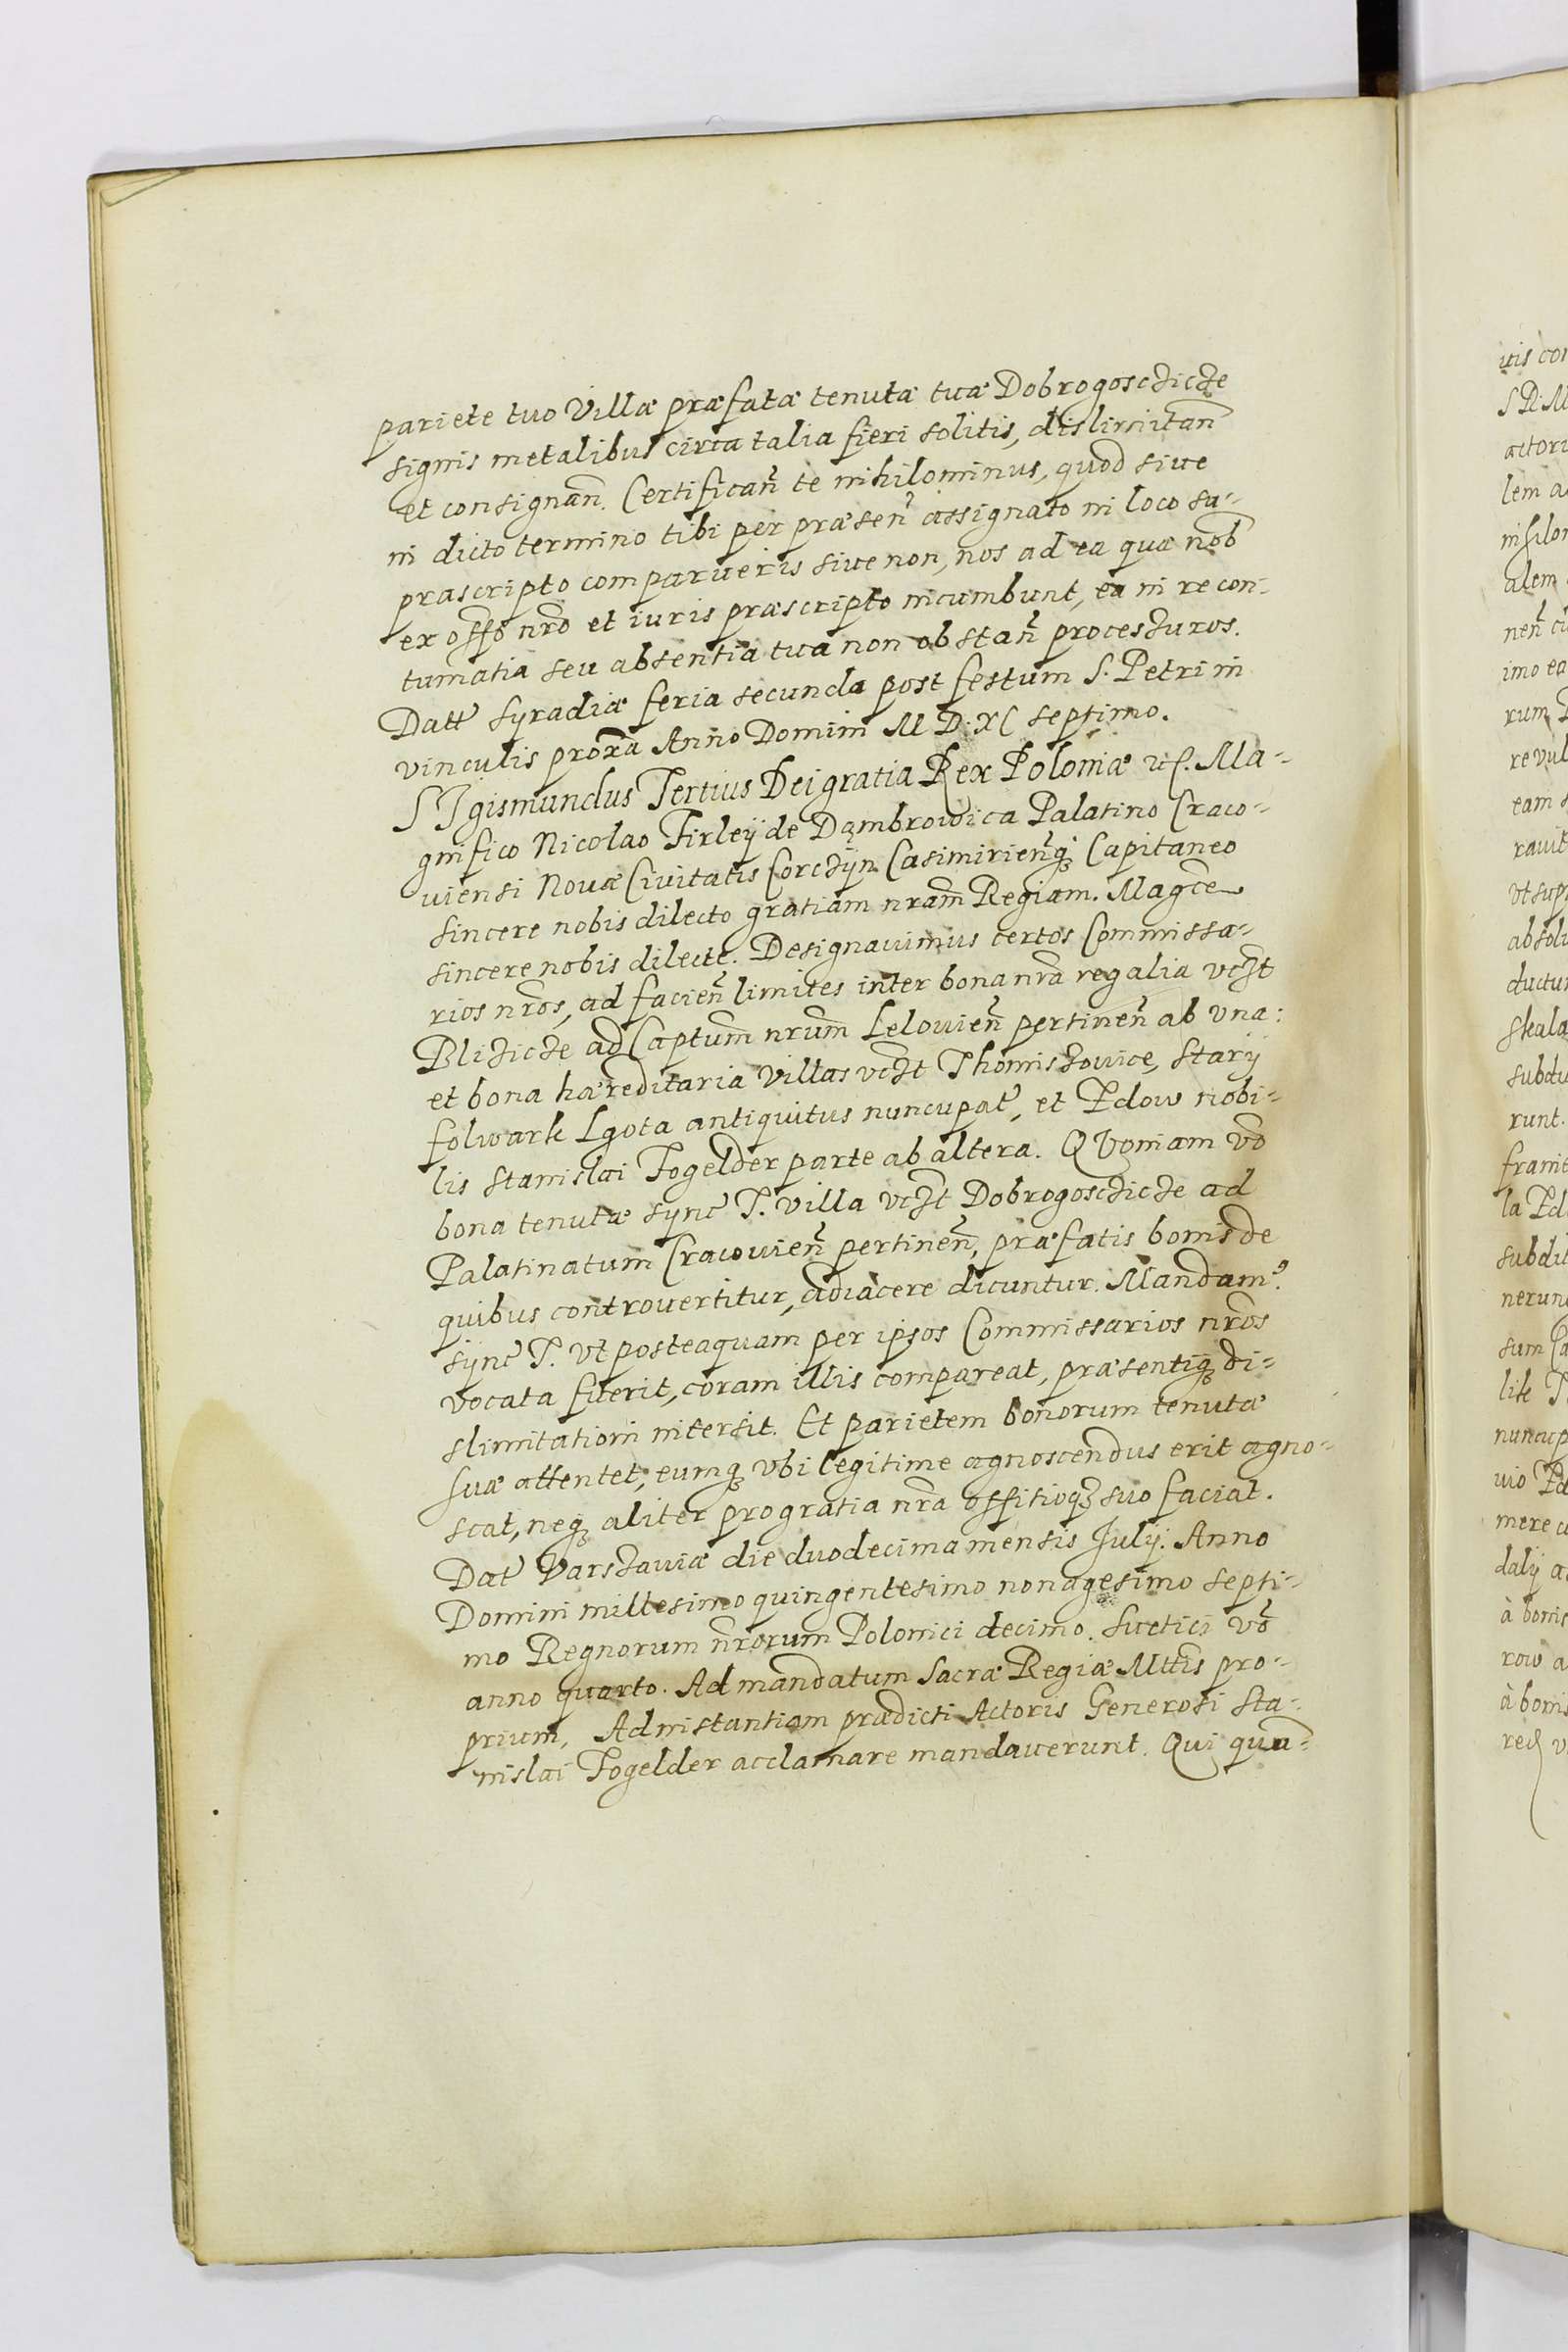 pariete tuo Villæ præfatæ tenutæ tuæ Dobrogosczicze
signis metalibus circa talia fieri solitis, dislimitan̄
et consignan̄. Certifican̄ te nihilominus, quod siue
in dicto termino tibi per præsen̄ assignato in loco su-
prascripto comparueris siue non, nos ad ea quæ nob̄
ex offō nr̄o et iuris præscripto incumbunt, ea in re con-
tumatia seu absentia tua non obstan̄ processuros.
Datt Syradiæ feria secunda post festum S. Petri in
vinculis proxa Anno Domini M D. XC septimo.
SIgismundus Tertius Dei gratia Rex Poloniæ etc. Ma-
gnifico Nicolao Firleÿ de Dąmbrowica Palatino Craco-
uiensi Nouæ Ciuitatis Corczÿn Casimirien̄q; Capitaneo
sincere nobis dilecto gratiam nr̄am Regiam. Magc̄e
sincere nobis dilecte. Designauimus certos Commissa-
rios nr̄os, ad facien̄ limites inter bona nr̄a regalia vczt
Blizicze ad Captum̄ nrum̄ Lelouien̄ pertinen̄ ab vna:
et bona hæreditaria Villas vczt Thomiszowice, Starÿ
folwark Lgota antiquitus nuncupat̄, et Pdow nobi-
lis Stanislai Fogelder parte ab altera. QVoniam vō
bona tenutæ Sync̄ T. villa vczt Dobrogosczicze ad
Palatinatum Cracouien̄ pertinen̄, præfatis bonis de
quibus controuertitur, adiacere dicuntur. Mandam⁹
Sÿnc̄ T. vt posteaquam per ipsos Commissarios nr̄os
vocata fuerit, coram illis compareat, præsentiq; di-
slimitationi intersit. Et parietem bonorum tenutæ
suæ attentet, eumq; vbi legitime agnoscendus erit agno-
scat, neq; aliter pro gratia nr̄a offitioq; suo faciat.
Dat̄ Varszauiæ die duodecima mensis Julÿ. Anno
Domini millesimo quingentesimo nonagesimo septi-
mo Regnorum nr̄orum Polonici decimo. Suetici vō
anno quarto. Ad mandatum Sacræ Regiæ Mttis pro-
prium. Ad instantiam prædicti Actoris Generosi Sta-
nislai Fogelder acclamare mandauerunt. Qui qua-